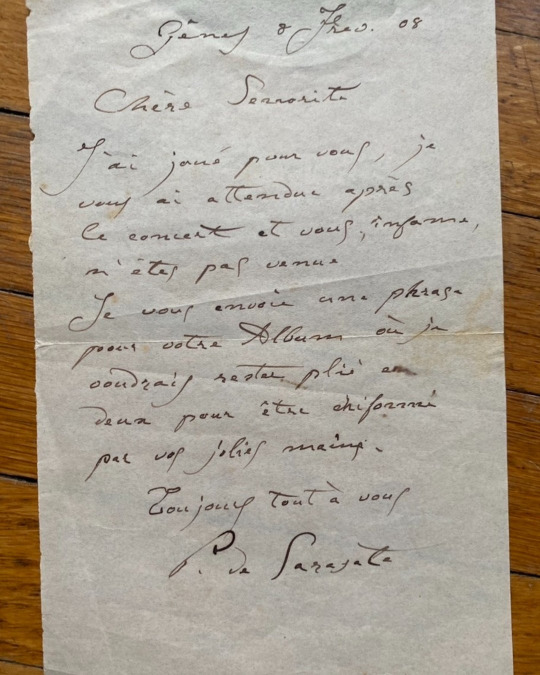 Gênes 8 Frev. 08
Chère Senorita
J'ai joué pour vous, je
vous ai attendue après
le concert et vous, infame,
n'êtes pas venue
Je vous envoie une phrase
pour votre Album où je
voudrais rester plié en
deux pour être chifonné
par vos jolies mains.
Toujours tout à vous
P. de Sarasate